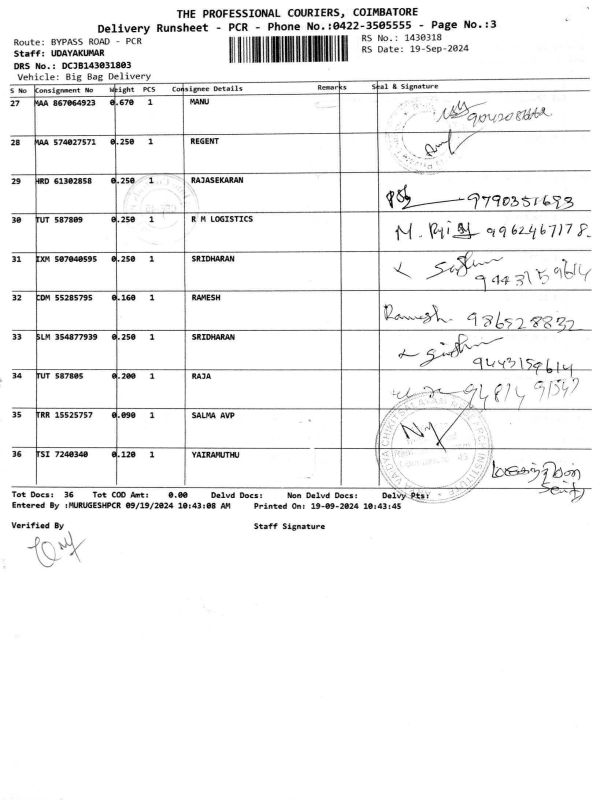 THE PROFESSIONAL COURIERS, COIMBATORE
Delivery Runsheet - PCR - Phone No.:0422-3505555 - Page No.:3
Route: BYPASS ROAD - PCR
RS No.: 1430318
Staff: UDAYAKUMAR
RS Date: 19-Sep-2024
DRS No.: DCJB143031803
Vehicle: Big Bag Delivery
S No Consignment No Weight PCS Consignee Details Remarks Seal & Signature
27 MAA 867064923 0.670 1 MANU
28 MAA 574027571 0.250 1 REGENT
29 HRD 61302858 0.250 1 RAJASEKARAN 9790351693
30 TUT 587809 0.250 1 R M LOGISTICS 9962467178.
31 IXM 507040595 0.250 1 SRIDHARAN 9443159614
32 CDM 55285795 0.160 1 RAMESH Ramesh. 986528832
33 SLM 354877939 0.250 1 SRIDHARAN 9443159614
34 TUT 587805 0.200 1 RAJA
35 TRR 15525757 0.090 1 SALMA AVP
36 TSI 7240340 0.120 1 YAIRAMUTHU
Tot Docs: 36 Tot COD Amt: 0.00 Delvd Docs: Non Delvd Docs: Delvy Pts:
Entered By :MURUGESHPCR 09/19/2024 10:43:08 AM Printed On: 19-09-2024 10:43:45
Verified By Staff Signature